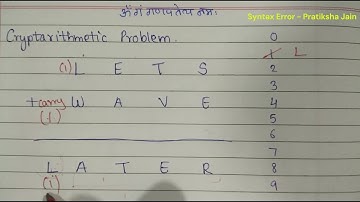 ॐ गं गणपतये नमः
Syntax Error - Pratiksha Jain
Cryptarithmetic Problem.
0
1 L
(1) L E T S 2
3
+ carry W A V E 4
(1) 5
6
7
L A T E R 8
(1) 9